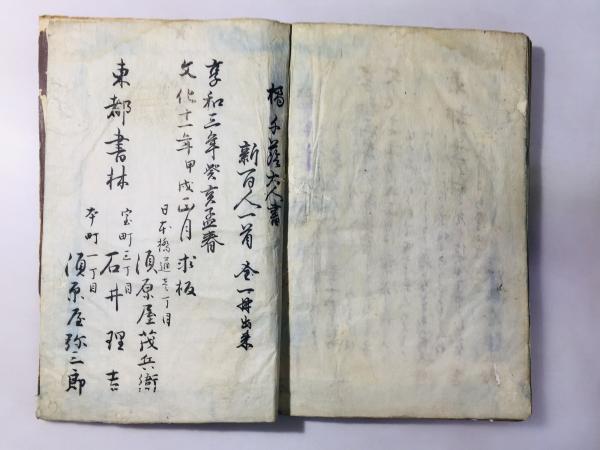 橘千蔭大人書
新百人一首 全一冊出来
享和三年癸亥孟春
文化十一年甲戌正月求板
日本橋通壱丁目
須原屋茂兵衛
東都書林
室町三丁目
石井理吉
本町一丁目
須原屋弥三郎